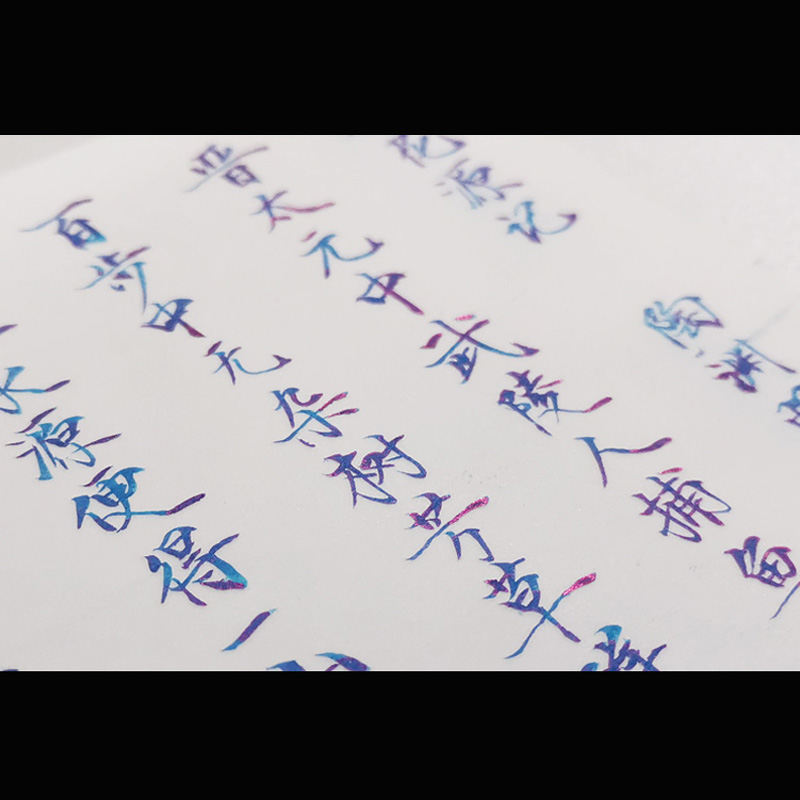 花源记 陶渊
晋太元中武陵人捕鱼
百步中无杂树芳草
水源便得一